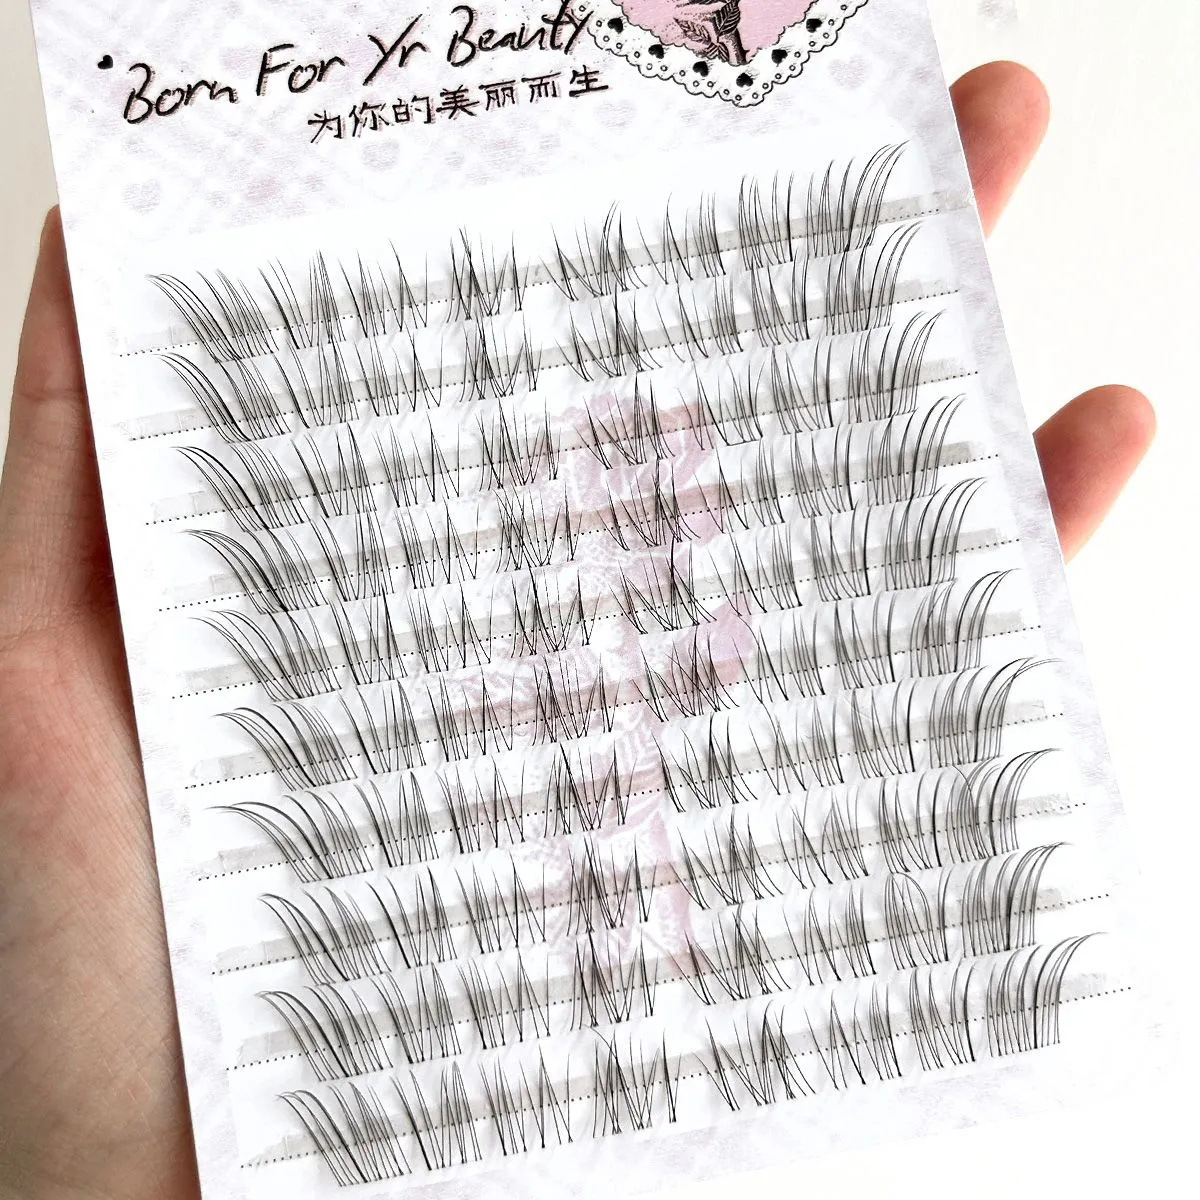 Born For Yr Beauty
为你的美丽而生